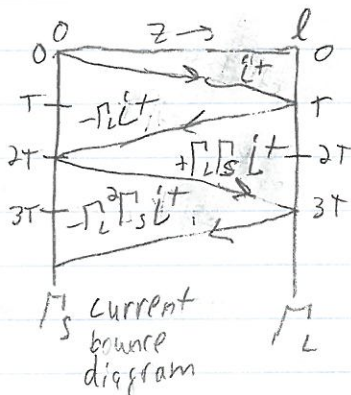 z → l
0 0
i⁺
T -Γ_L i⁺ T
2T +Γ_LΓ_S i⁺ 2T
3T -Γ_L²Γ_S i⁺ 3T
Γ_S current Γ_L
bounce
diagram